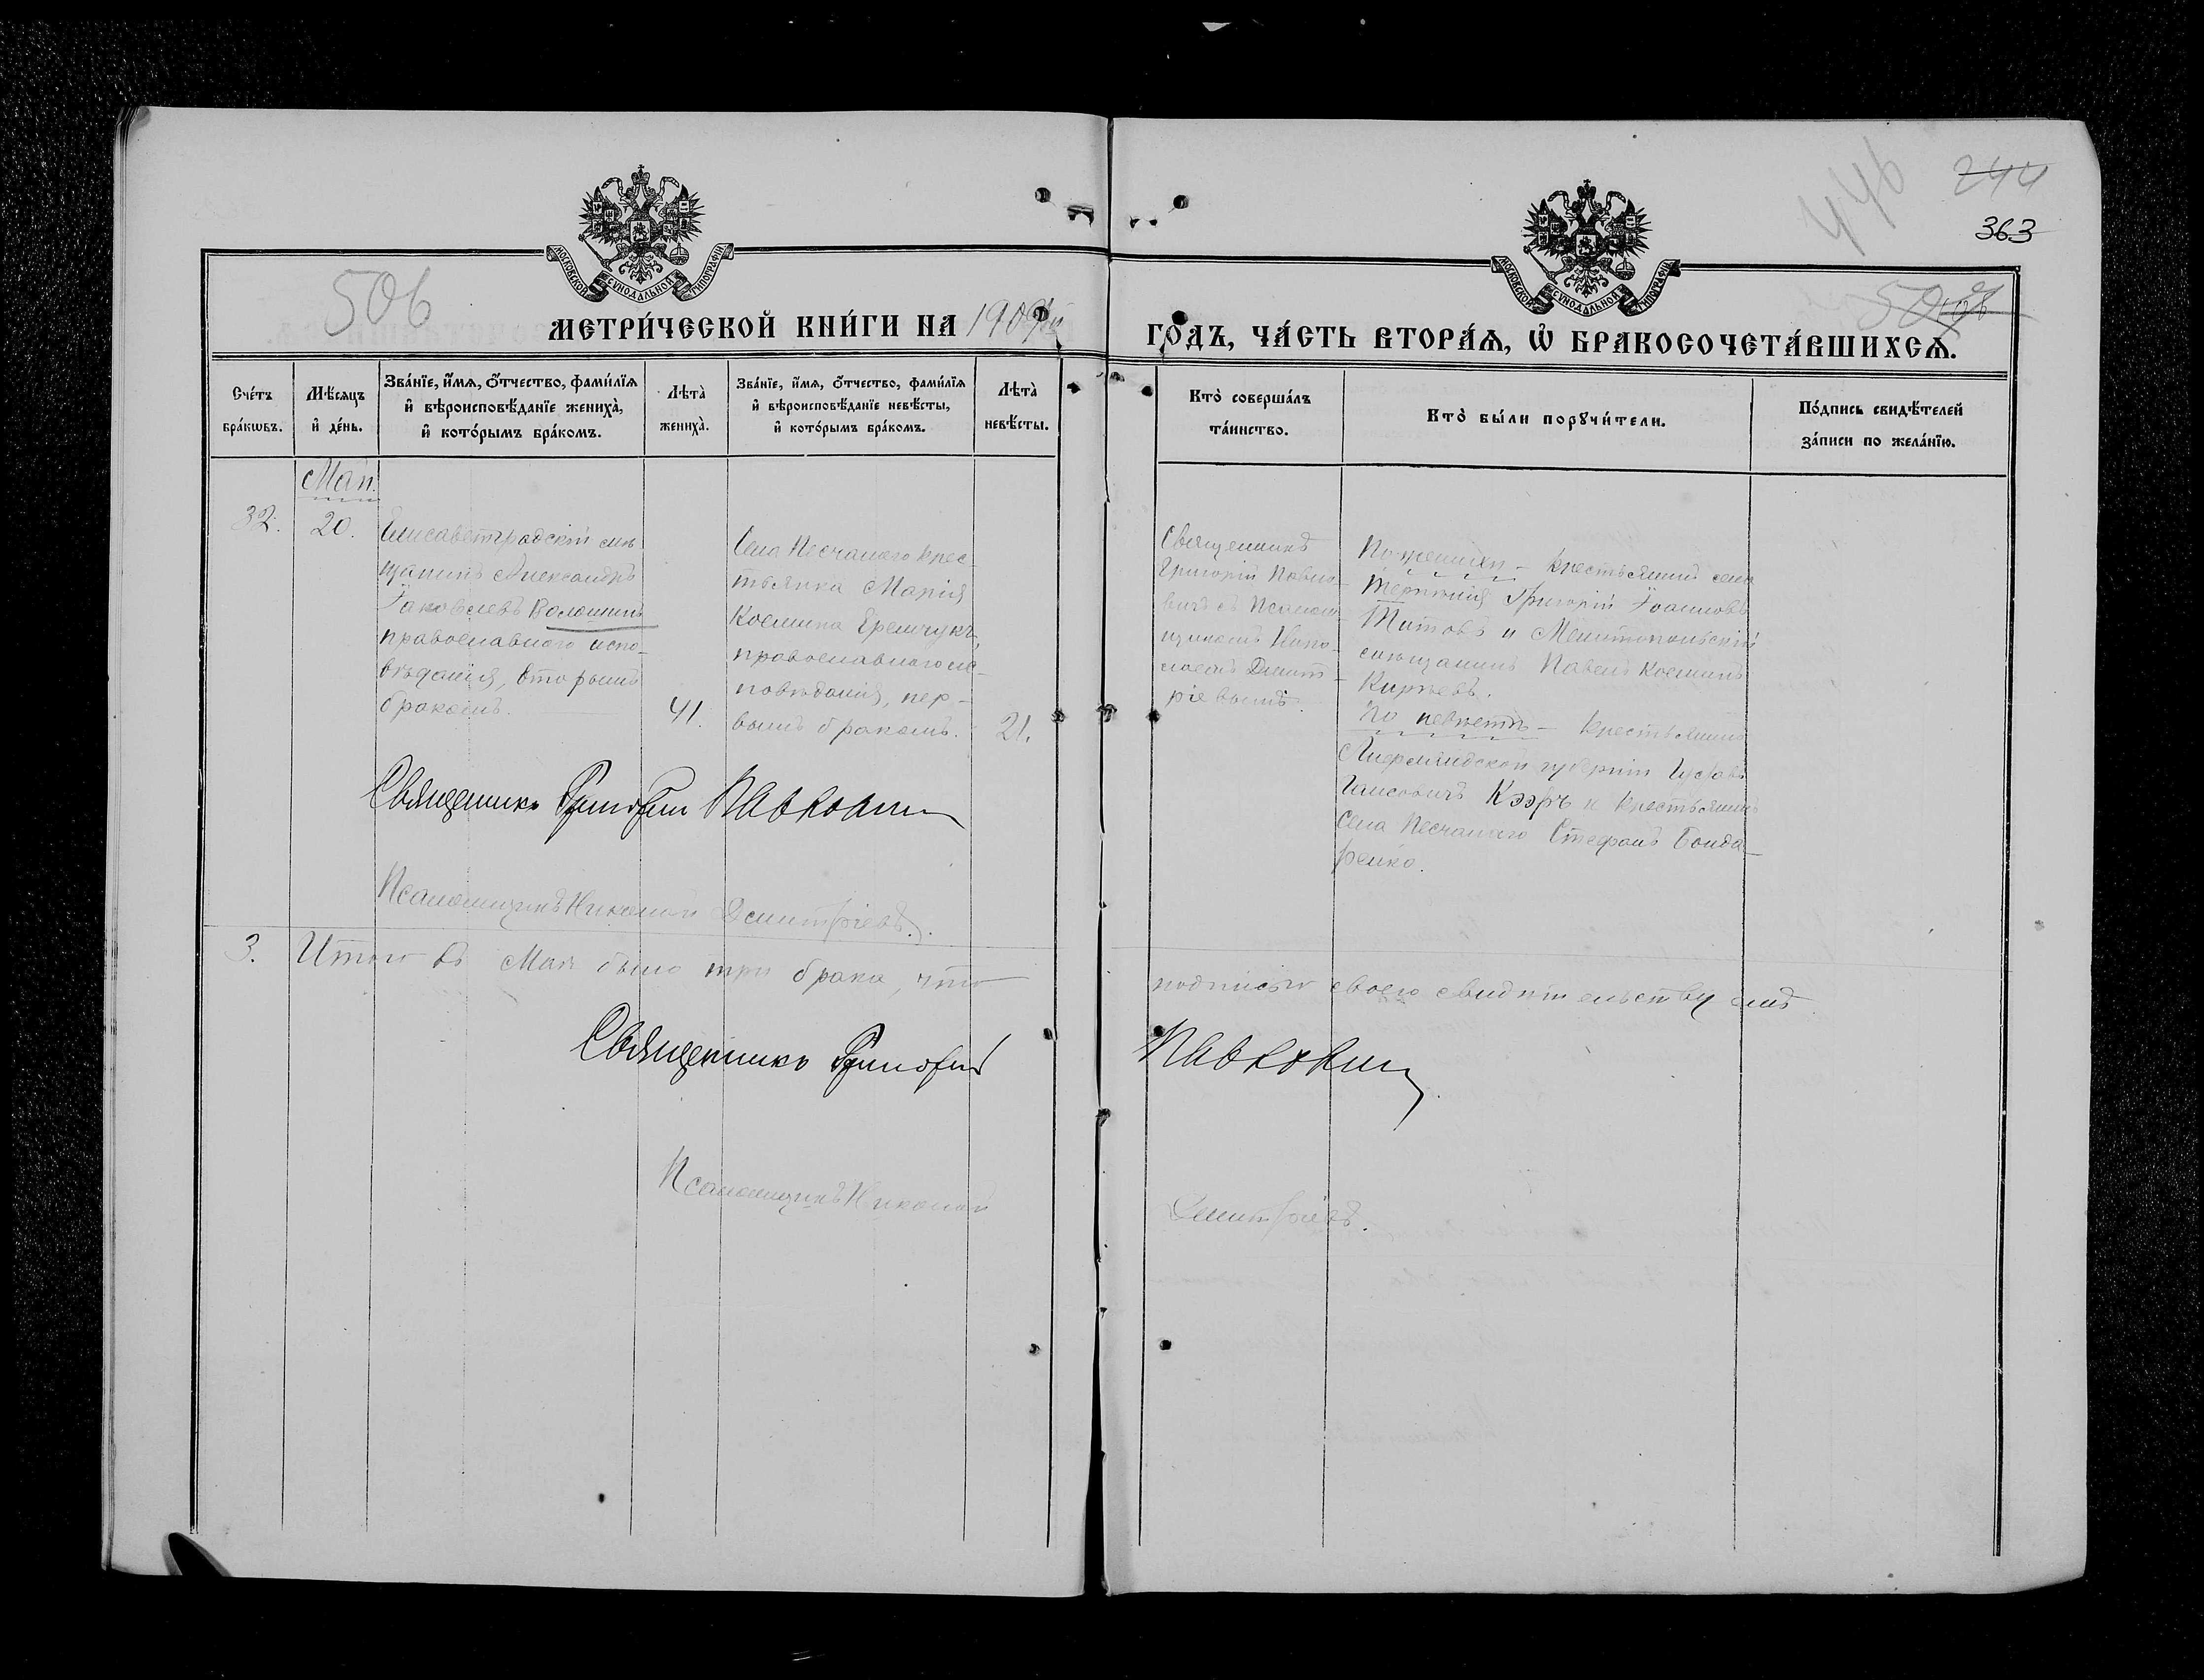 446
244
363
506
МОСКОВСКОЙ СѴНОДАЛЬНОЙ ТИПОГРАФІИ
МОСКОВСКОЙ СѴНОДАЛЬНОЙ ТИПОГРАФІИ
МЕТРИ́ЧЕСКОЙ КНИ́ГИ НА 1909й
ГОДЪ, ЧА́СТЬ ВТОРА́Ѧ, Ѡ҆ БРАКОСОЧЕТА́ВШИХСѦ.
Сче́тъ бра́кѡвъ.
Мѣ́сяцъ и҆ де́нь.
Зва́нїе, и҆́мѧ, ѻ҆́тчество, фами́лїѧ
и҆ вѣроисповѣ́данїе жениха̀,
и҆ кото́рымъ бра́комъ.
Лѣта̀ жениха̀.
Зва́нїе, и҆́мѧ, ѻ҆́тчество, фами́лїѧ
и҆ вѣроисповѣ́данїе невѣ́сты,
и҆ кото́рымъ бра́комъ.
Лѣта̀ невѣ́сты.
Кто̀ соверша́лъ та́инство.
Кто̀ бы́ли порꙋчи́тели.
По́дпись свидѣ́телей за́писи по жела́нїю.
Май.
32.
20.
Елисаветградскій мѣ
щанинъ Александръ
Іаковлевъ Волошинъ
православнаго испо-
вѣданія, вторымъ
бракомъ.
41.
Села Песчанаго крес-
тьянка Марія
Космина Еремчукъ,
православнаго ис-
повѣданія, пер-
вымъ бракомъ.
21.
Священникъ
Григорій Павло-
вичъ съ Псалом-
щикомъ Нико-
лаемъ Димит-
ріевымъ.
По женихѣ - Крестьянинъ села
Терпѣнія Григорій Іоанновъ
Титовъ и Мелитопольскій
мѣщанинъ Павелъ Косминъ
Кирѣевъ.
По невѣстѣ - Крестьянинъ
Лифляндской губерніи Густавъ
Кээръ и Крестьянинъ
села Песчанаго Стефанъ Бонда-
ренко.
Священникъ Григорій Павлович
Псаломщикъ Николай Димитріевъ.
3. Итого въ Маѣ было три брака, что
подписью своею свидѣтельствуемъ
Священникъ Григорій
Павлович
Псаломщикъ Николай
Димитріевъ.